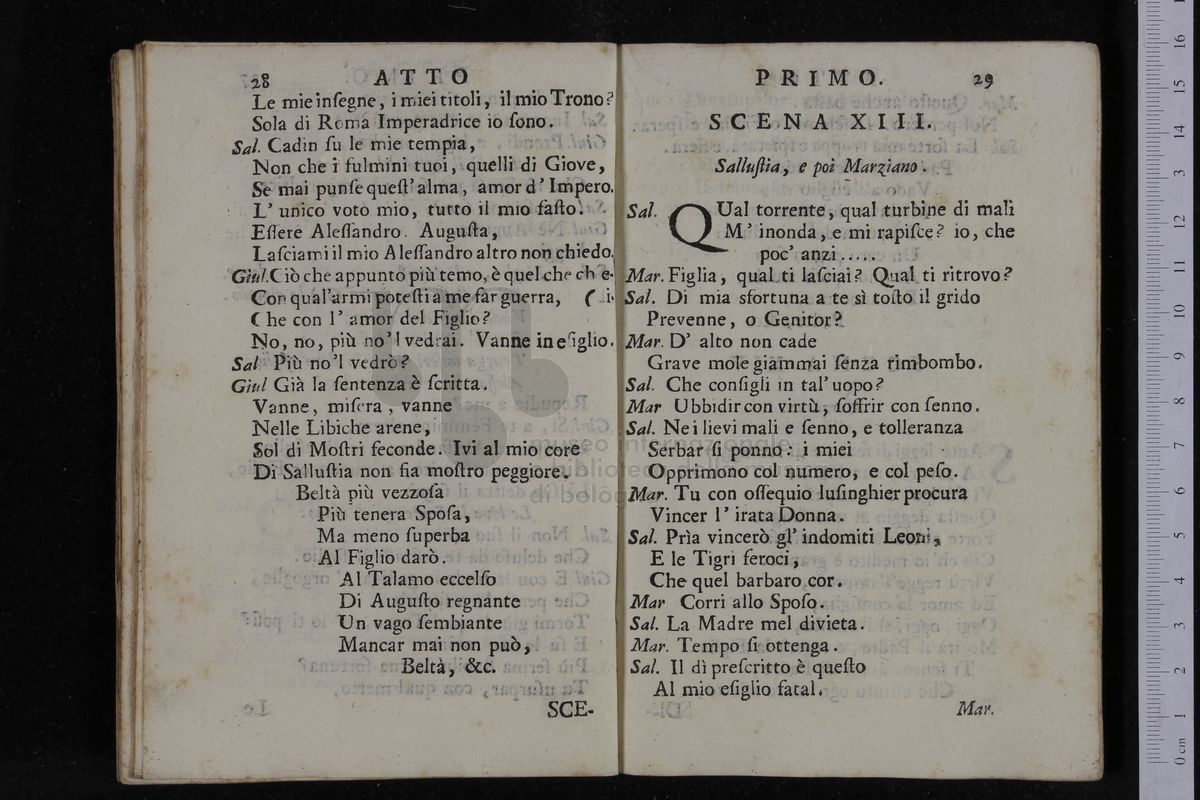 28 ATTO
Le mie inſegne, i miei titoli, il mio Trono?
Sola di Roma Imperadrice io ſono.
Sal. Cadin ſu le mie tempia,
Non che i fulmini tuoi, quelli di Giove,
Se mai punſe queſt' alma, amor d' Impero.
L' unico voto mio, tutto il mio faſto.
Eſſere Aleſſandro. Auguſta,
Laſciami il mio Aleſſandro altro non chiedo.
Giul. Ciò che appunto più temo, è quel che
Con qual' armi poteſti a me far guerra,
Che con l' amor del Figlio?
No, no, più no'l vedrai. Vanne in eſiglio.
Sal Più no'l vedrò?
Giul Già la ſentenza è ſcritta.
Vanne, miſera, vanne
Nelle Libiche arene,
Sol di Moſtri feconde. Ivi al mio core
Di Salluſtia non fia moſtro peggiore.
Beltà più vezzoſa
Più tenera Spoſa,
Ma meno ſuperba
Al Figlio darò.
Al Talamo eccelſo
Di Auguſto regnante
Un vago ſembiante
Mancar mai non può,
Beltà, &c.
SCE-
PRIMO. 29
SCENA XIII.
Salluſtia, e poi Marziano.
Sal. QUal torrente, qual turbine di mali
M' inonda, e mi rapiſce? io, che
poc' anzi.....
Mar. Figlia, qual ti laſciai? Qual ti ritrovo?
Sal. Di mia sfortuna a te sì toſto il grido
Prevenne, o Genitor?
Mar. D' alto non cade
Grave mole giammai ſenza rimbombo.
Sal. Che conſigli in tal' uopo?
Mar Ubbidir con virtù, ſoffrir con ſenno.
Sal. Ne i lievi mali e ſenno, e tolleranza
Serbar ſi ponno: i miei
Opprimono col numero, e col peſo.
Mar. Tu con oſſequio luſinghier procura
Vincer l' irata Donna.
Sal. Pria vincerò gl' indomiti Leoni,
E le Tigri feroci,
Che quel barbaro cor.
Mar Corri allo Spoſo.
Sal. La Madre mel divieta.
Mar. Tempo ſi ottenga.
Sal. Il dì preſcritto è queſto
Al mio eſiglio fatal.
Mar.
museo internazionale
biblioteca
di bologna
0 cm 1 2 3 4 5 6 7 8 9 10 11 12 13 14 15 16